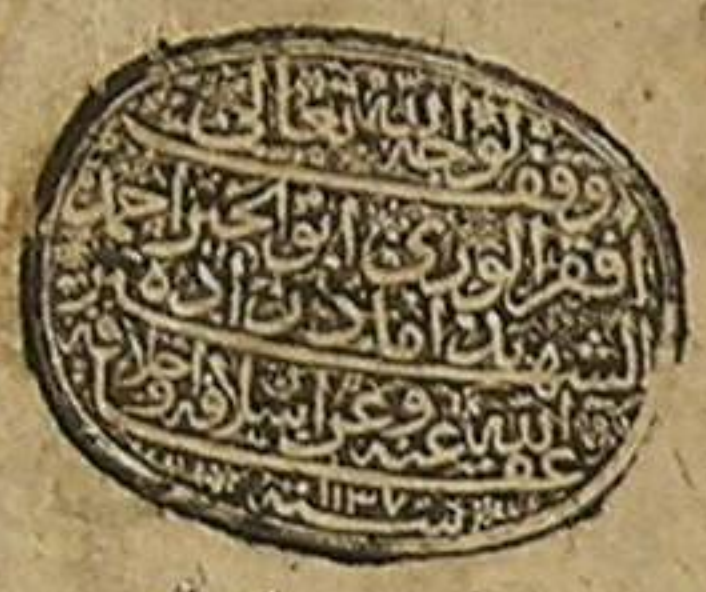 وقف لوجه الله تعالى
افقر الورى ابو الخير احمد
الشهير بداماد زاده
عفى الله عنه وعن اسلافه واخلافه
سنة ١١٣٧